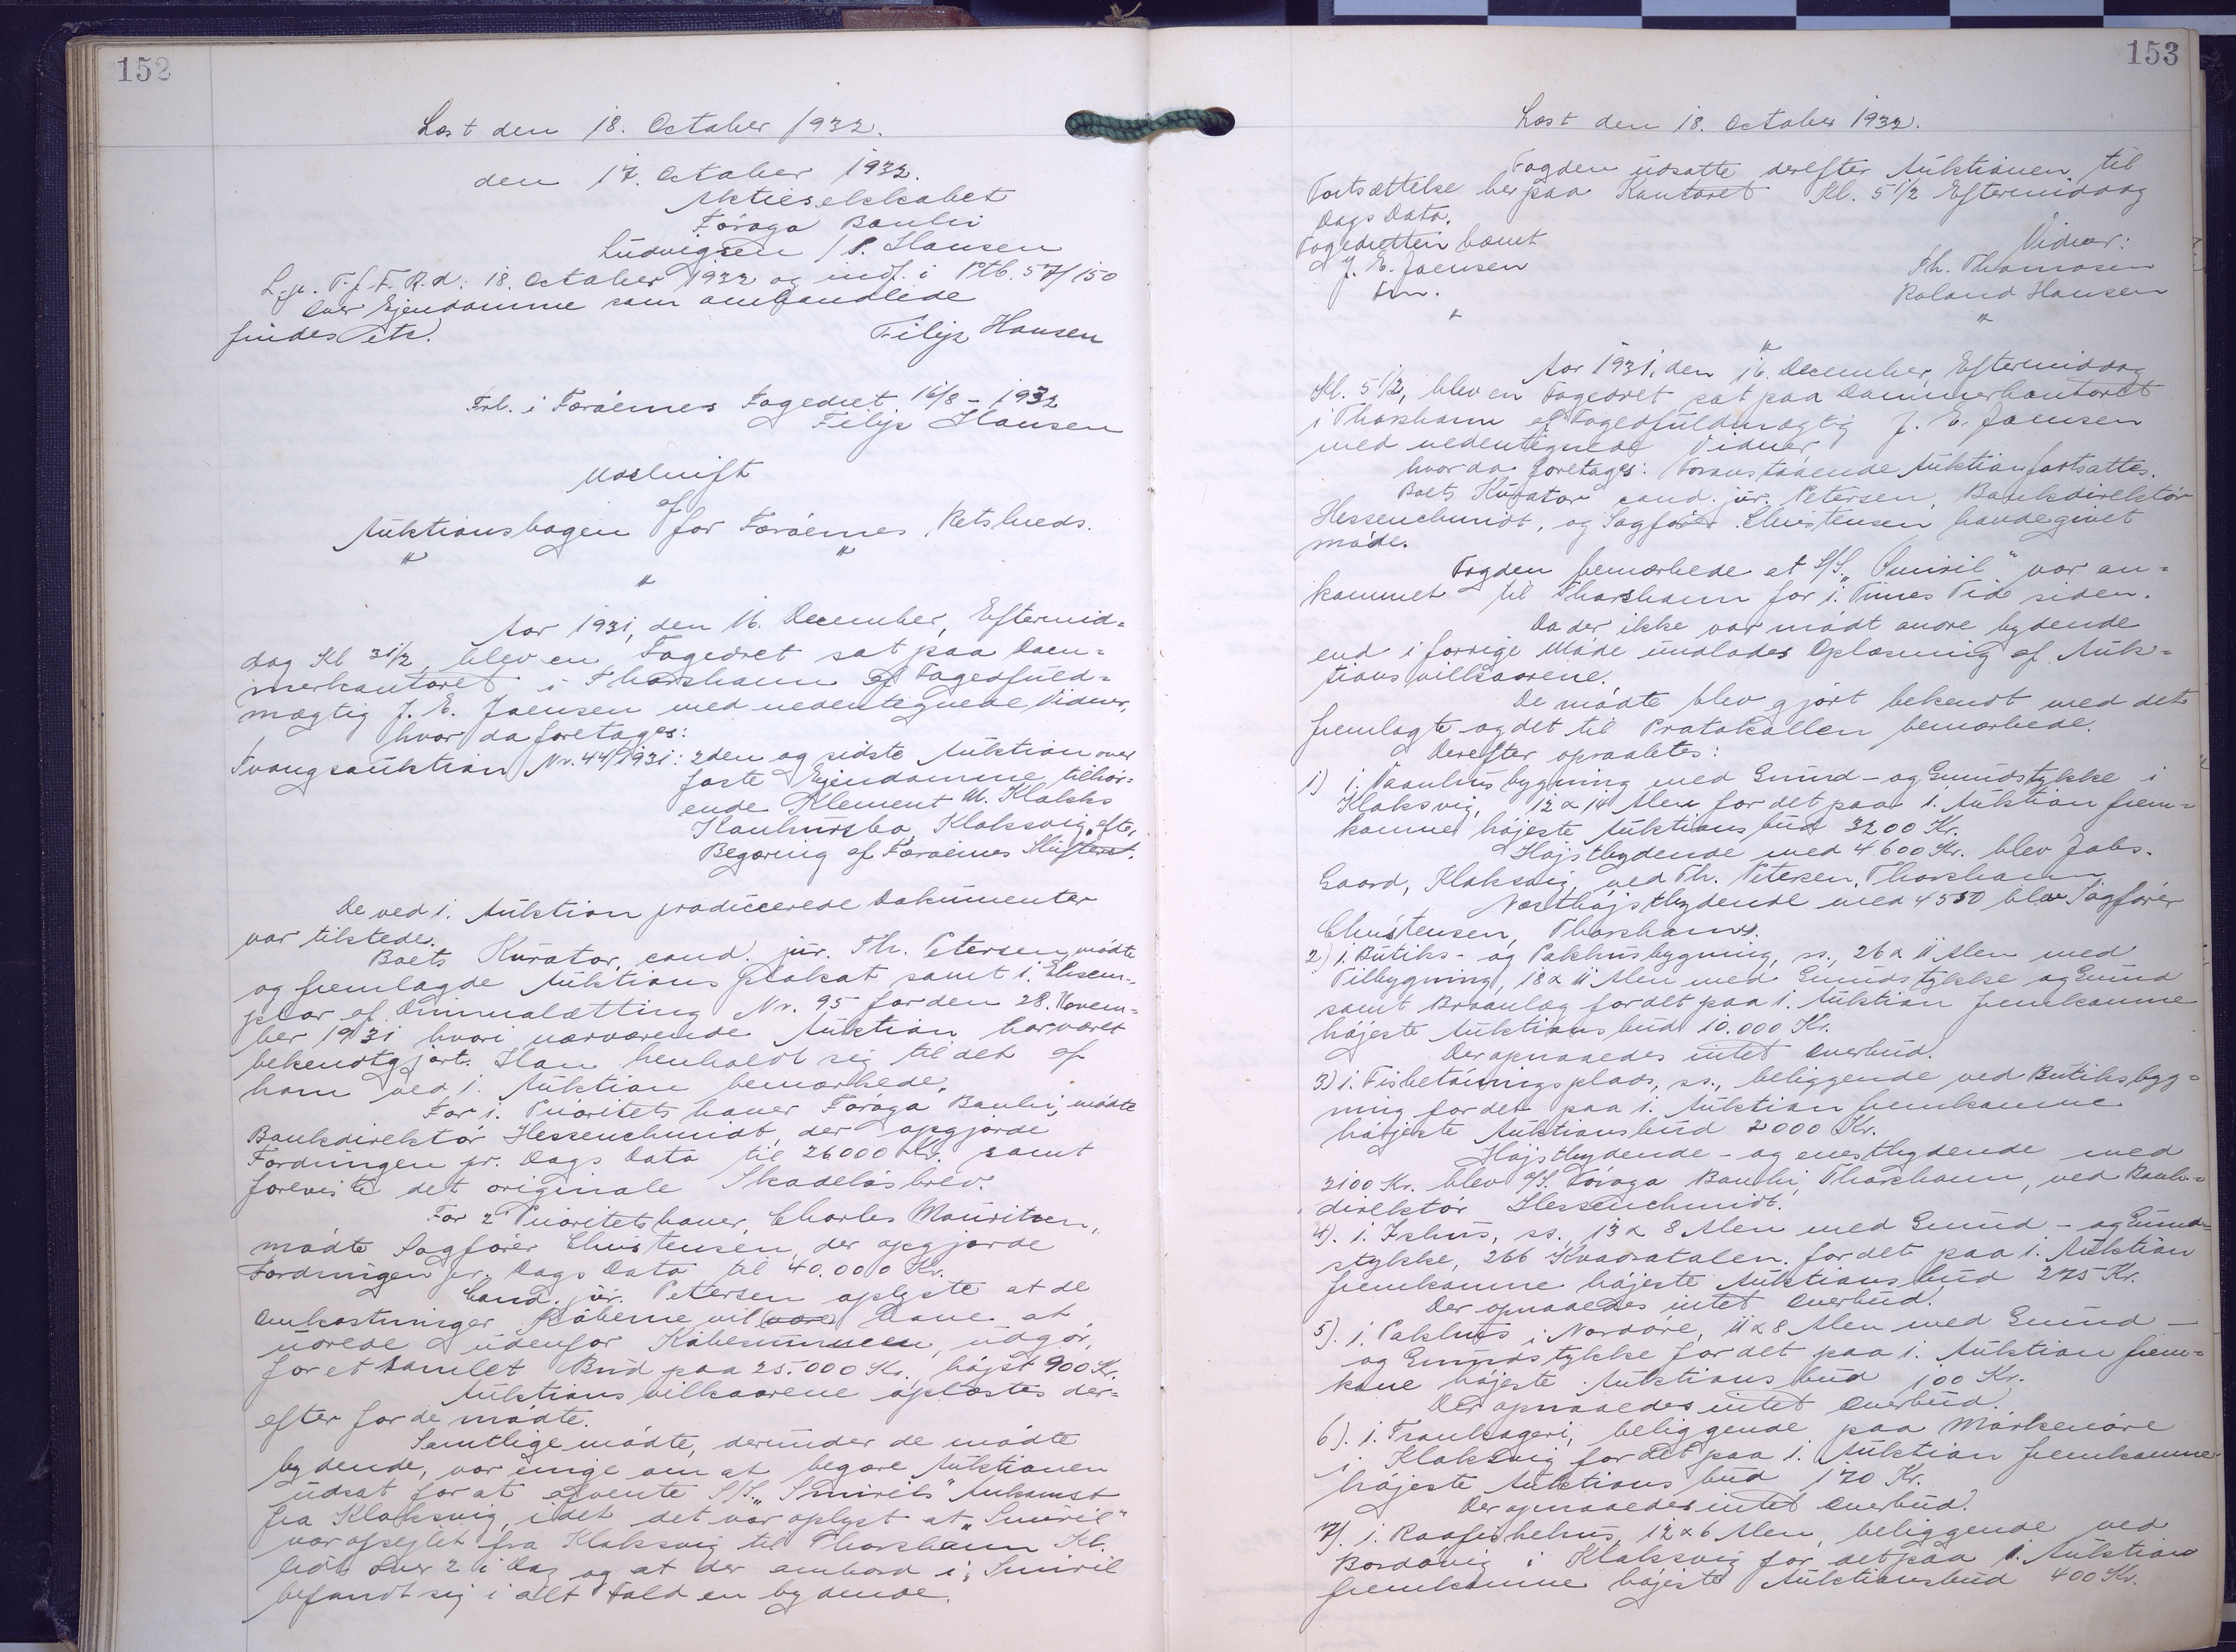 152
Læst den 18. October 1932.
den 17. October 1932.
Aktieselskabet
Föroya Banki
Ludvigsen / P. Hansen
L. p. T. f. F. R. d. 18. October 1932 og indf. i Ptb. 57/150
Over Ejendomme som omhandlede
findes etc.
Filip Hansen
Frl. i Færöernes Fogedret 16/8 - 1932
Filip Hansen
Udskrift
af
Auktionsbogen for Færöernes Retskreds.
"
"
"
Aar 1931, den 16. December, Eftermid=
dag Kl 3 1/2, blev en Fogedret sat paa Dom=
merkontoret i Thorshavn af Fogedfuld=
mægtig J. E. Joensen med nedentegnede Vidner,
hvor da foretages:
Tvangsauktion Nr. 44/1931: 2den og sidste Auktion over
faste Ejendomme tilhör=
ende Klement M. Klakks
Konkursbo, Klaksvig, efter
Begæring af Færöernes Skifteret.
De ved 1. Auktion producerede Dokumenter
var tilstede.
Boets Kurator, cand. jur. Th. Petersen, mödte
og fremlagde Auktionsplakat samt 1. Eksem=
plar af Dimmalætting Nr. 95 for den 28. Novem=
ber 1931 hvori nærværende Auktion har været
bekendtgjort. Han henholdt sig til det af
ham ved 1. Auktion bemærkede.
For 1. Prioritetshaver Föroya Banki, mödte
Bankdirektör Hessenschmidt, der opgjorde
Fordringen pr. Dags Dato til 26000 Kr. samt
foreviste det originale Skadelösbrev.
For 2 Prioritetshaver, Charles Mouritsen,
mödte Sagförer Christensen, der opgjorde
Fordringen pr. Dags Dato til 40.000 Kr.
Cand. jur. Petersen oplyste at de
Omkostninger Köberne vil være have at
udrede udenfor Köbesummen, udgör,
for et samlet Bud paa 25.000 Kr., höjst 900 Kr.
Auktionsvilkaarene oplæstes der=
efter for de mödte.
Samtlige mödte, derunder de mödte
bydende, var enige om at begære Auktionen
udsat for at afvente S/S. "Smirils" Ankomst
fra Klaksvig, idet det var oplyst at "Smiril"
var afsejlet fra Klaksvig til Thorshavn Kl.
lidt over 2 i Dag og at der ombord i "Smiril
befandt sig i alt Fald en bydende.
153
Læst den 18. October 1932.
Fogden udsatte derefter Auktionen til
Fortsættelse her paa Kontoret Kl. 5 1/2 Eftermiddag
Dags Dato.
Fogedretten hævet
J. E. Joensen
Fm.
Vidner:
Th. Thomasen
Roland Hansen
"
"
"
Aar 1931, den 16. December, Eftermiddag
Kl. 5 1/2, blev en Fogedret sat paa Dommerkontoret
i Thorshavn af Fogedfuldmægtig J. E. Joensen
med nedentegnede Vidner,
hvor da foretages: Foranstaaende Auktion fortsattes.
Boets Kurator cand. jur. Petersen, Bankdirektör
Hessenschmidt, og Sagförer Christensen havde givet
möde.
Fogden bemærkede at S/S. "Smiril" var an=
kommet til Thorshavn for 1. Times Tid siden.
Da der ikke var mödt andre bydende
end i forrige Möde undlodes Oplæsning af Auk=
tionsvilkaarene.
De mödte blev gjort bekendt med det
fremlagte og det til Protokollen bemærkede.
Derefter opraabtes:
1) 1. Vaanhusbygning med Grund- og Grundstykke i
Klaksvig, 12 x 14 Alen for det paa 1. Auktion frem=
komne höjeste Auktionsbud 3200 Kr.
Höjstbydende med 4600 Kr. blev Jobs.
Gaard, Klaksvig, ved Th. Petersen, Thorshavn
Næsthöjstbydende med 4550 blev Sagförer
Christensen, Thorshavn.
2) 1. Butiks- og Pakhusbygning, ss., 26 x 11 Alen med
Tilbygning, 18 x 11 Alen med Grundstykke og Grund
samt Braanlæg for det paa 1. Auktion fremkomne
höjeste Auktionsbud 10.000 Kr.
Der opnaaedes intet Overbud.
3) 1. Fisketörringsplads, ss., beliggende ved Butiksbyg=
ning for det paa 1. Auktion fremkomne
höjeste Auktionsbud 2000 Kr.
Höjstbydende- og enestbydende med
2100 Kr. blev A/S. Föroya Banki, Thorshavn, ved Bank=
direktör Hessenschmidt.
4). 1. Ishus, ss., 13 x 8 Alen med Grund- og Grund=
stykke, 266 Kvadratalen for det paa 1. Auktion
fremkomne höjeste Auktionsbud 275 Kr.
Der opnaaedes intet Overbud.
5). 1. Pakhus i Nordöre, 11 x 8 Alen med Grund-
og Grundstykke for det paa 1. Auktion frem=
kone höjeste Auktionsbud 100 Kr.
Der opnaaedes intet Overbud.
6). 1. Trankogeri, beliggende paa Markenöre
i Klaksvig for det paa 1. Auktion fremkomne
höjeste Auktionsbud 170 Kr.
Der opnaaedes intet Overbud.
7). 1. Raafiskehus, 12 x 6 Alen, beliggende ved
Bordövig i Klaksvig for det paa 1. Auktion
fremkomne höjeste Auktionsbud 400 Kr.